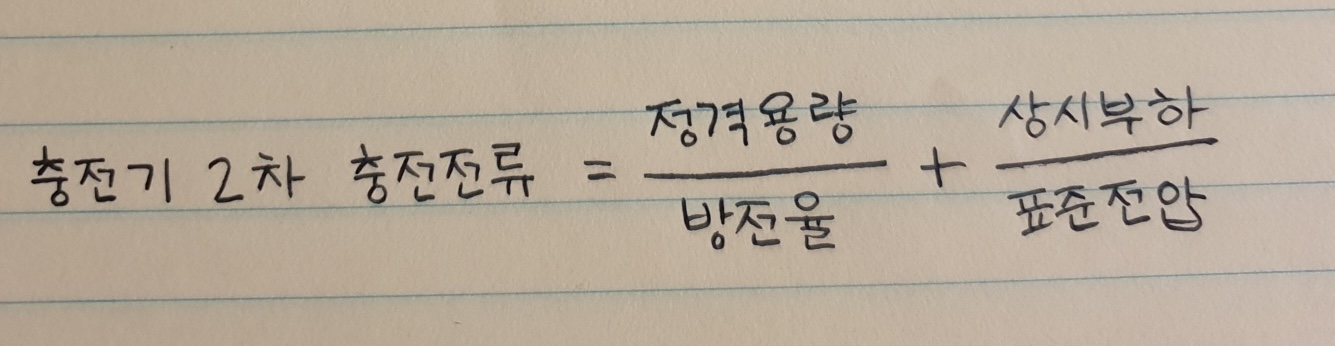 충전기 2차 충전전류 = 정격용량 / 방전율 + 상시부하 / 표준전압